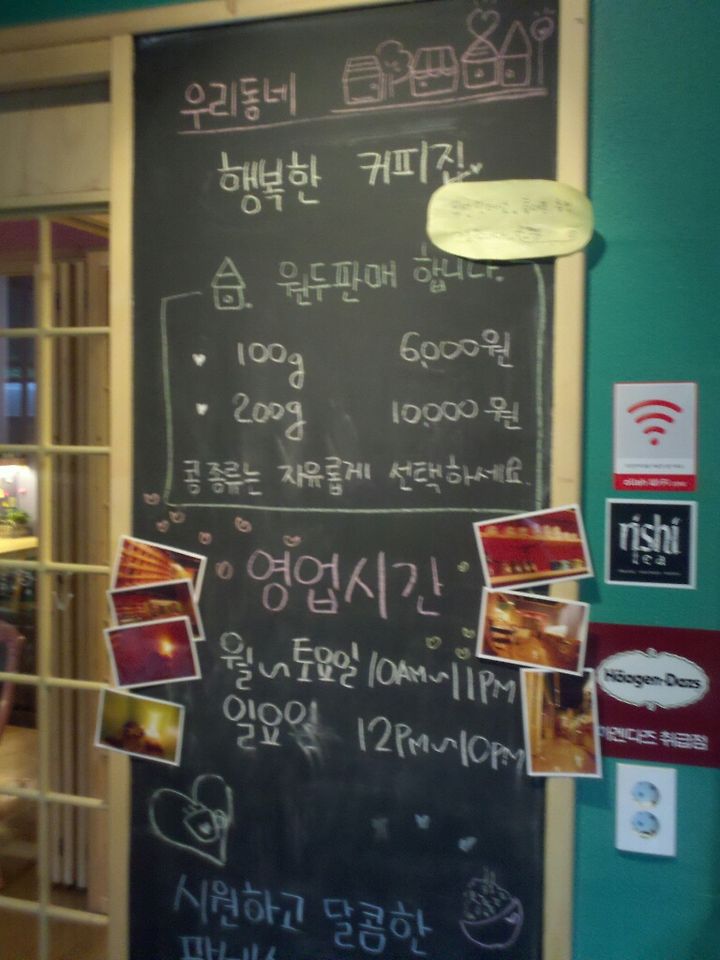 우리동네
행복한 커피집
원두판매 합니다.
100g 6,000원
200g 10,000원
콩 종류는 자유롭게 선택하세요.
영업시간
월~토요일 10AM~11PM
일요일 12PM~10PM
시원하고 달콤한
olleh
rishi
tea
Häagen-Dazs
취급점